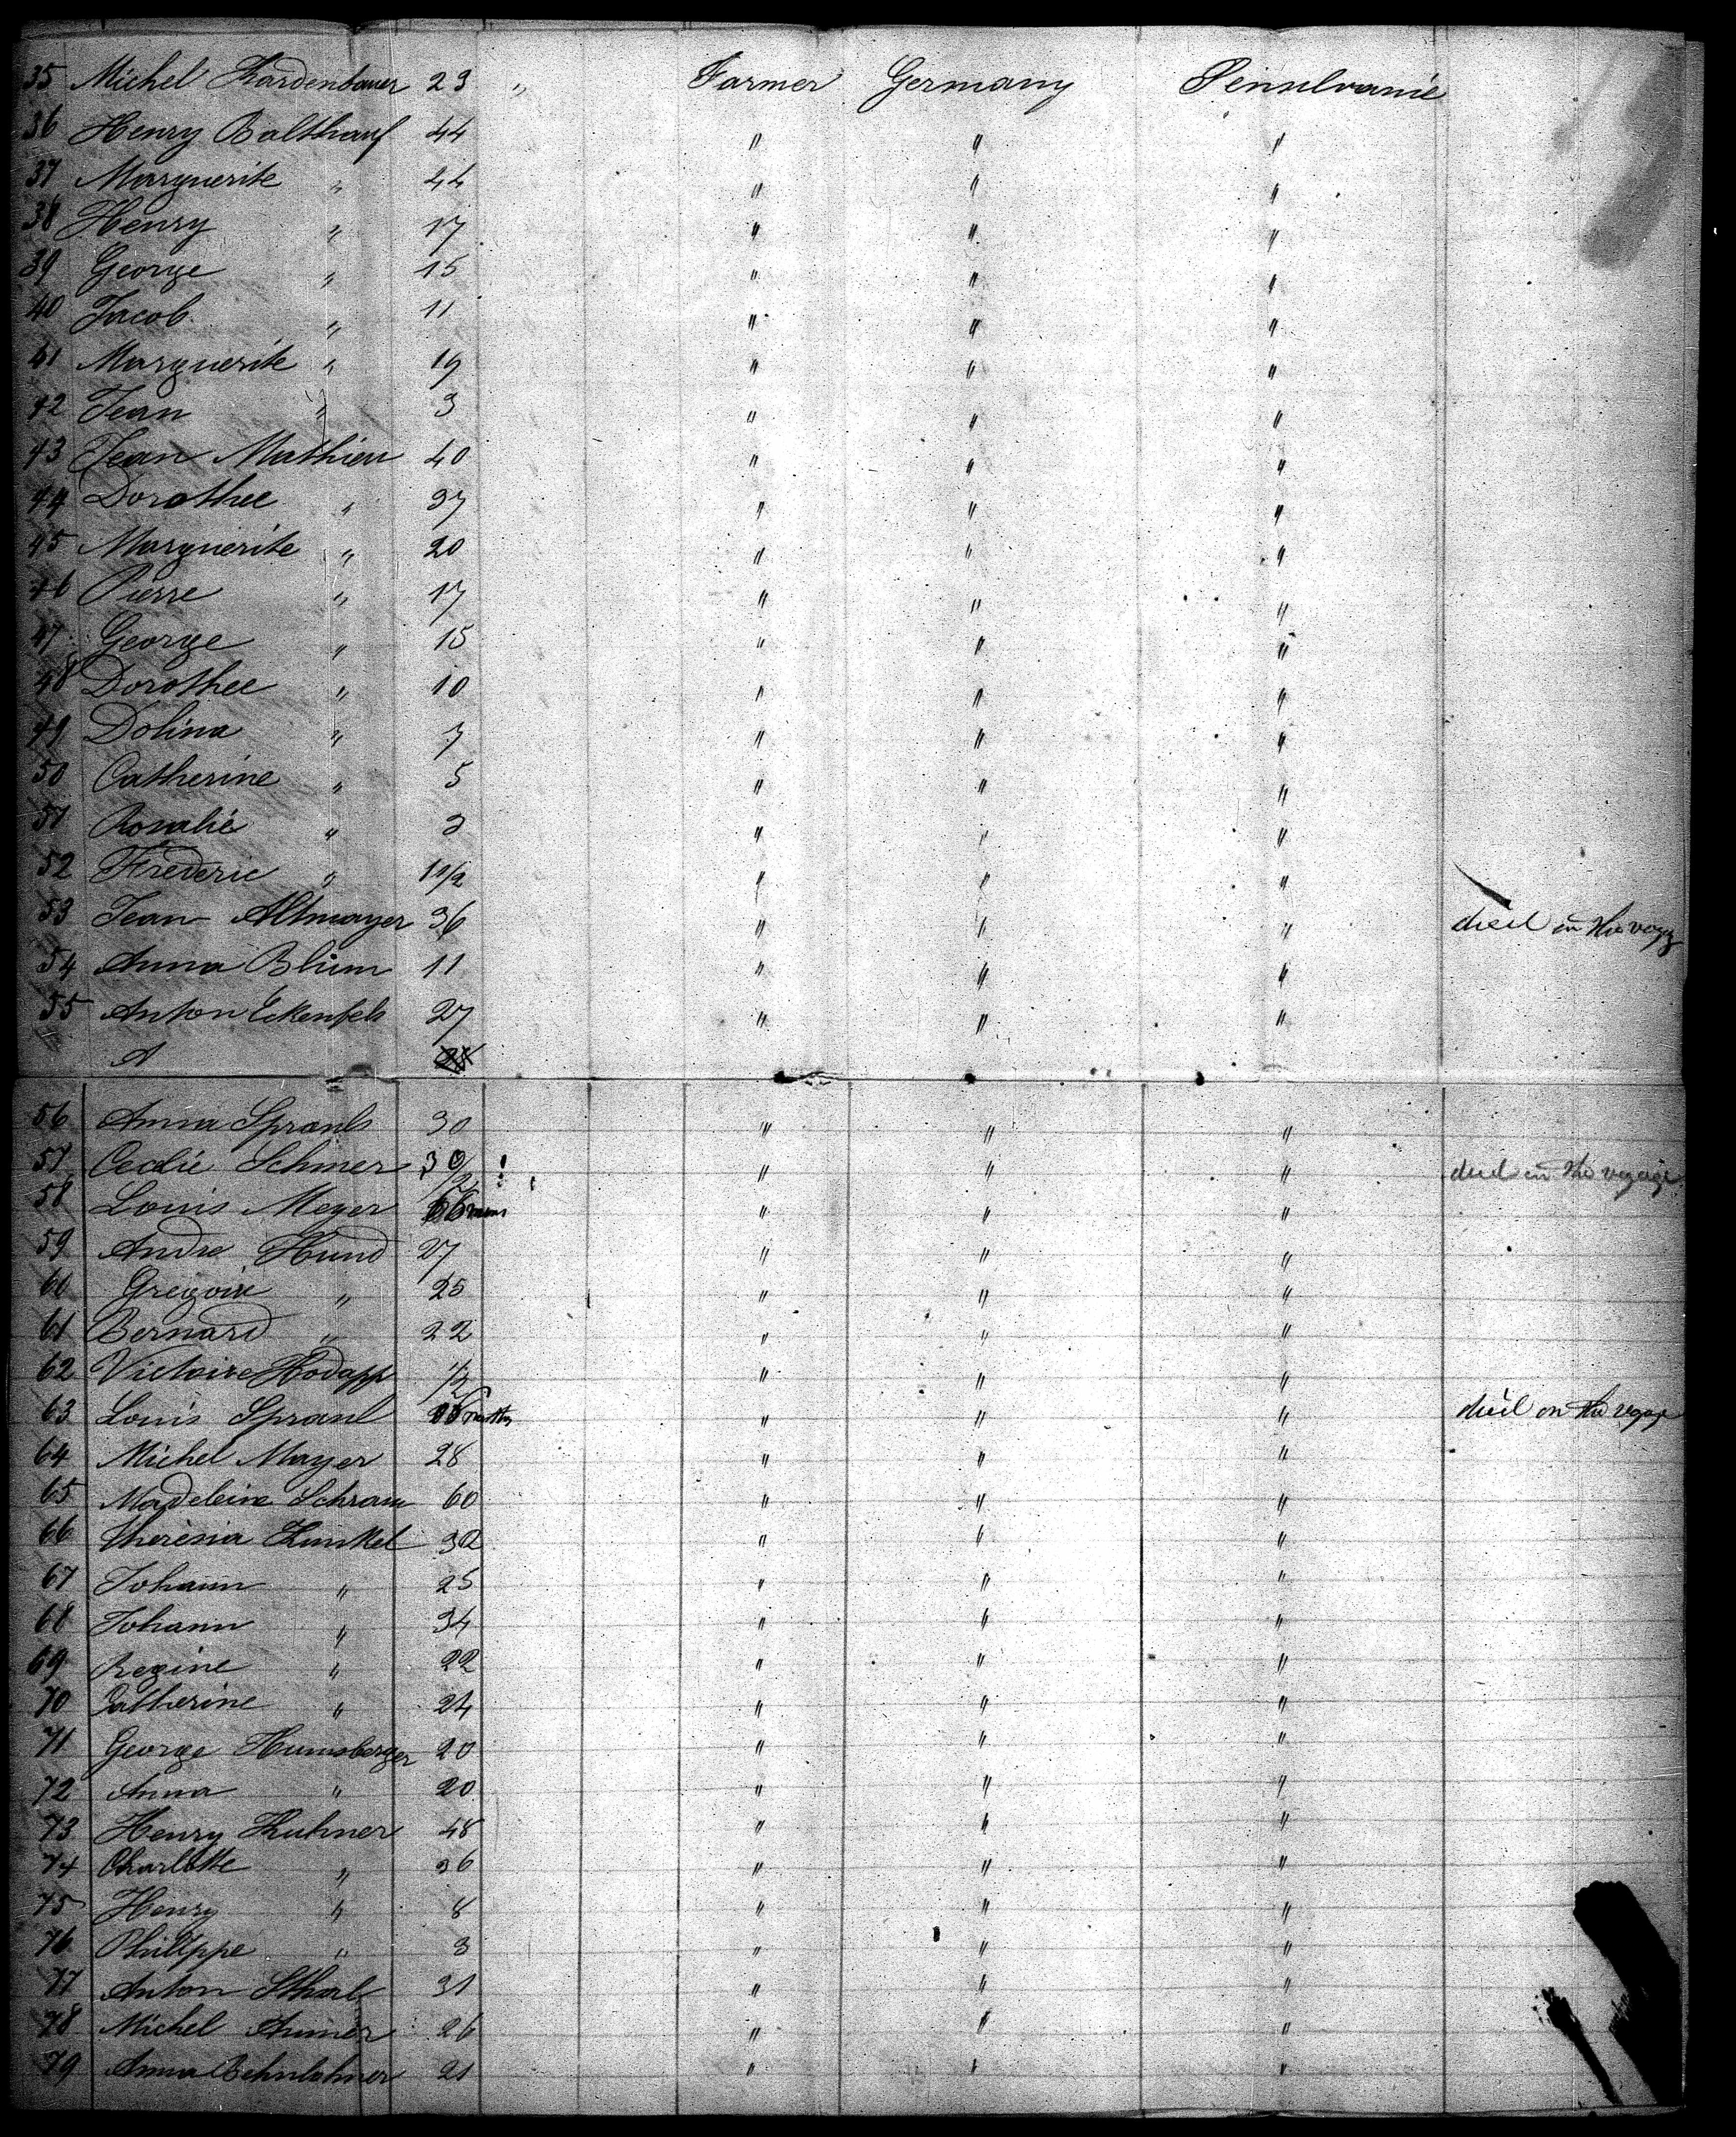 35 Michel Hardenbauer 23 " Farmer Germany Pensilvanie
36 Henry Balthauf 44 " " "
37 Marguerite " 44 " " "
38 Henry " 17 " " "
39 George " 15 " " "
40 Jacob " 11 " " "
41 Marguerite " 19 " " "
42 Jean " 3 " " "
43 Jean Mathieu 40 " " "
44 Dorothee " 37 " " "
45 Marguerite " 20 " " "
46 Pierre " 17 " " "
47 George " 15 " " "
48 Dorothee " 10 " " "
49 Dolina " 7 " " "
50 Catherine " 5 " " "
51 Rosalie " 3 " " "
52 Frederic " 1 1/2 " " "
53 Jean Altmayer 36 " " " died in the voyg
54 Anna Blum 11 " " "
55 Anton Eckenfels 27 " " "
A 28
56 Anna Sprauls 30 " " "
57 Cecilie Schmer 30 " " " died in the voyage
58 Louis Meyer 6 " " "
59 Andre Hund 27 " " "
60 Gregoire " 25 " " "
61 Bernard " 22 " " "
62 Victoire Hodapp 1/2 " " "
63 Louis Spraul " " " died on the voyage
64 Michel Mayer 28 " " "
65 Madeleine Schram 60 " " "
66 Theresia Kunkel 32 " " "
67 Johann " 25 " " "
68 Johann " 34 " " "
69 Regine " 22 " " "
70 Catherine " 24 " " "
71 George Humsberger 20 " " "
72 Anna " 20 " " "
73 Henry Kuhner 48 " " "
74 Charlotte " 36 " " "
75 Henry " 8 " " "
76 Philippe " 3 " " "
77 Anton Sthal 31 " " "
78 Michel Anmer 26 " " "
79 Anna 21 " " "